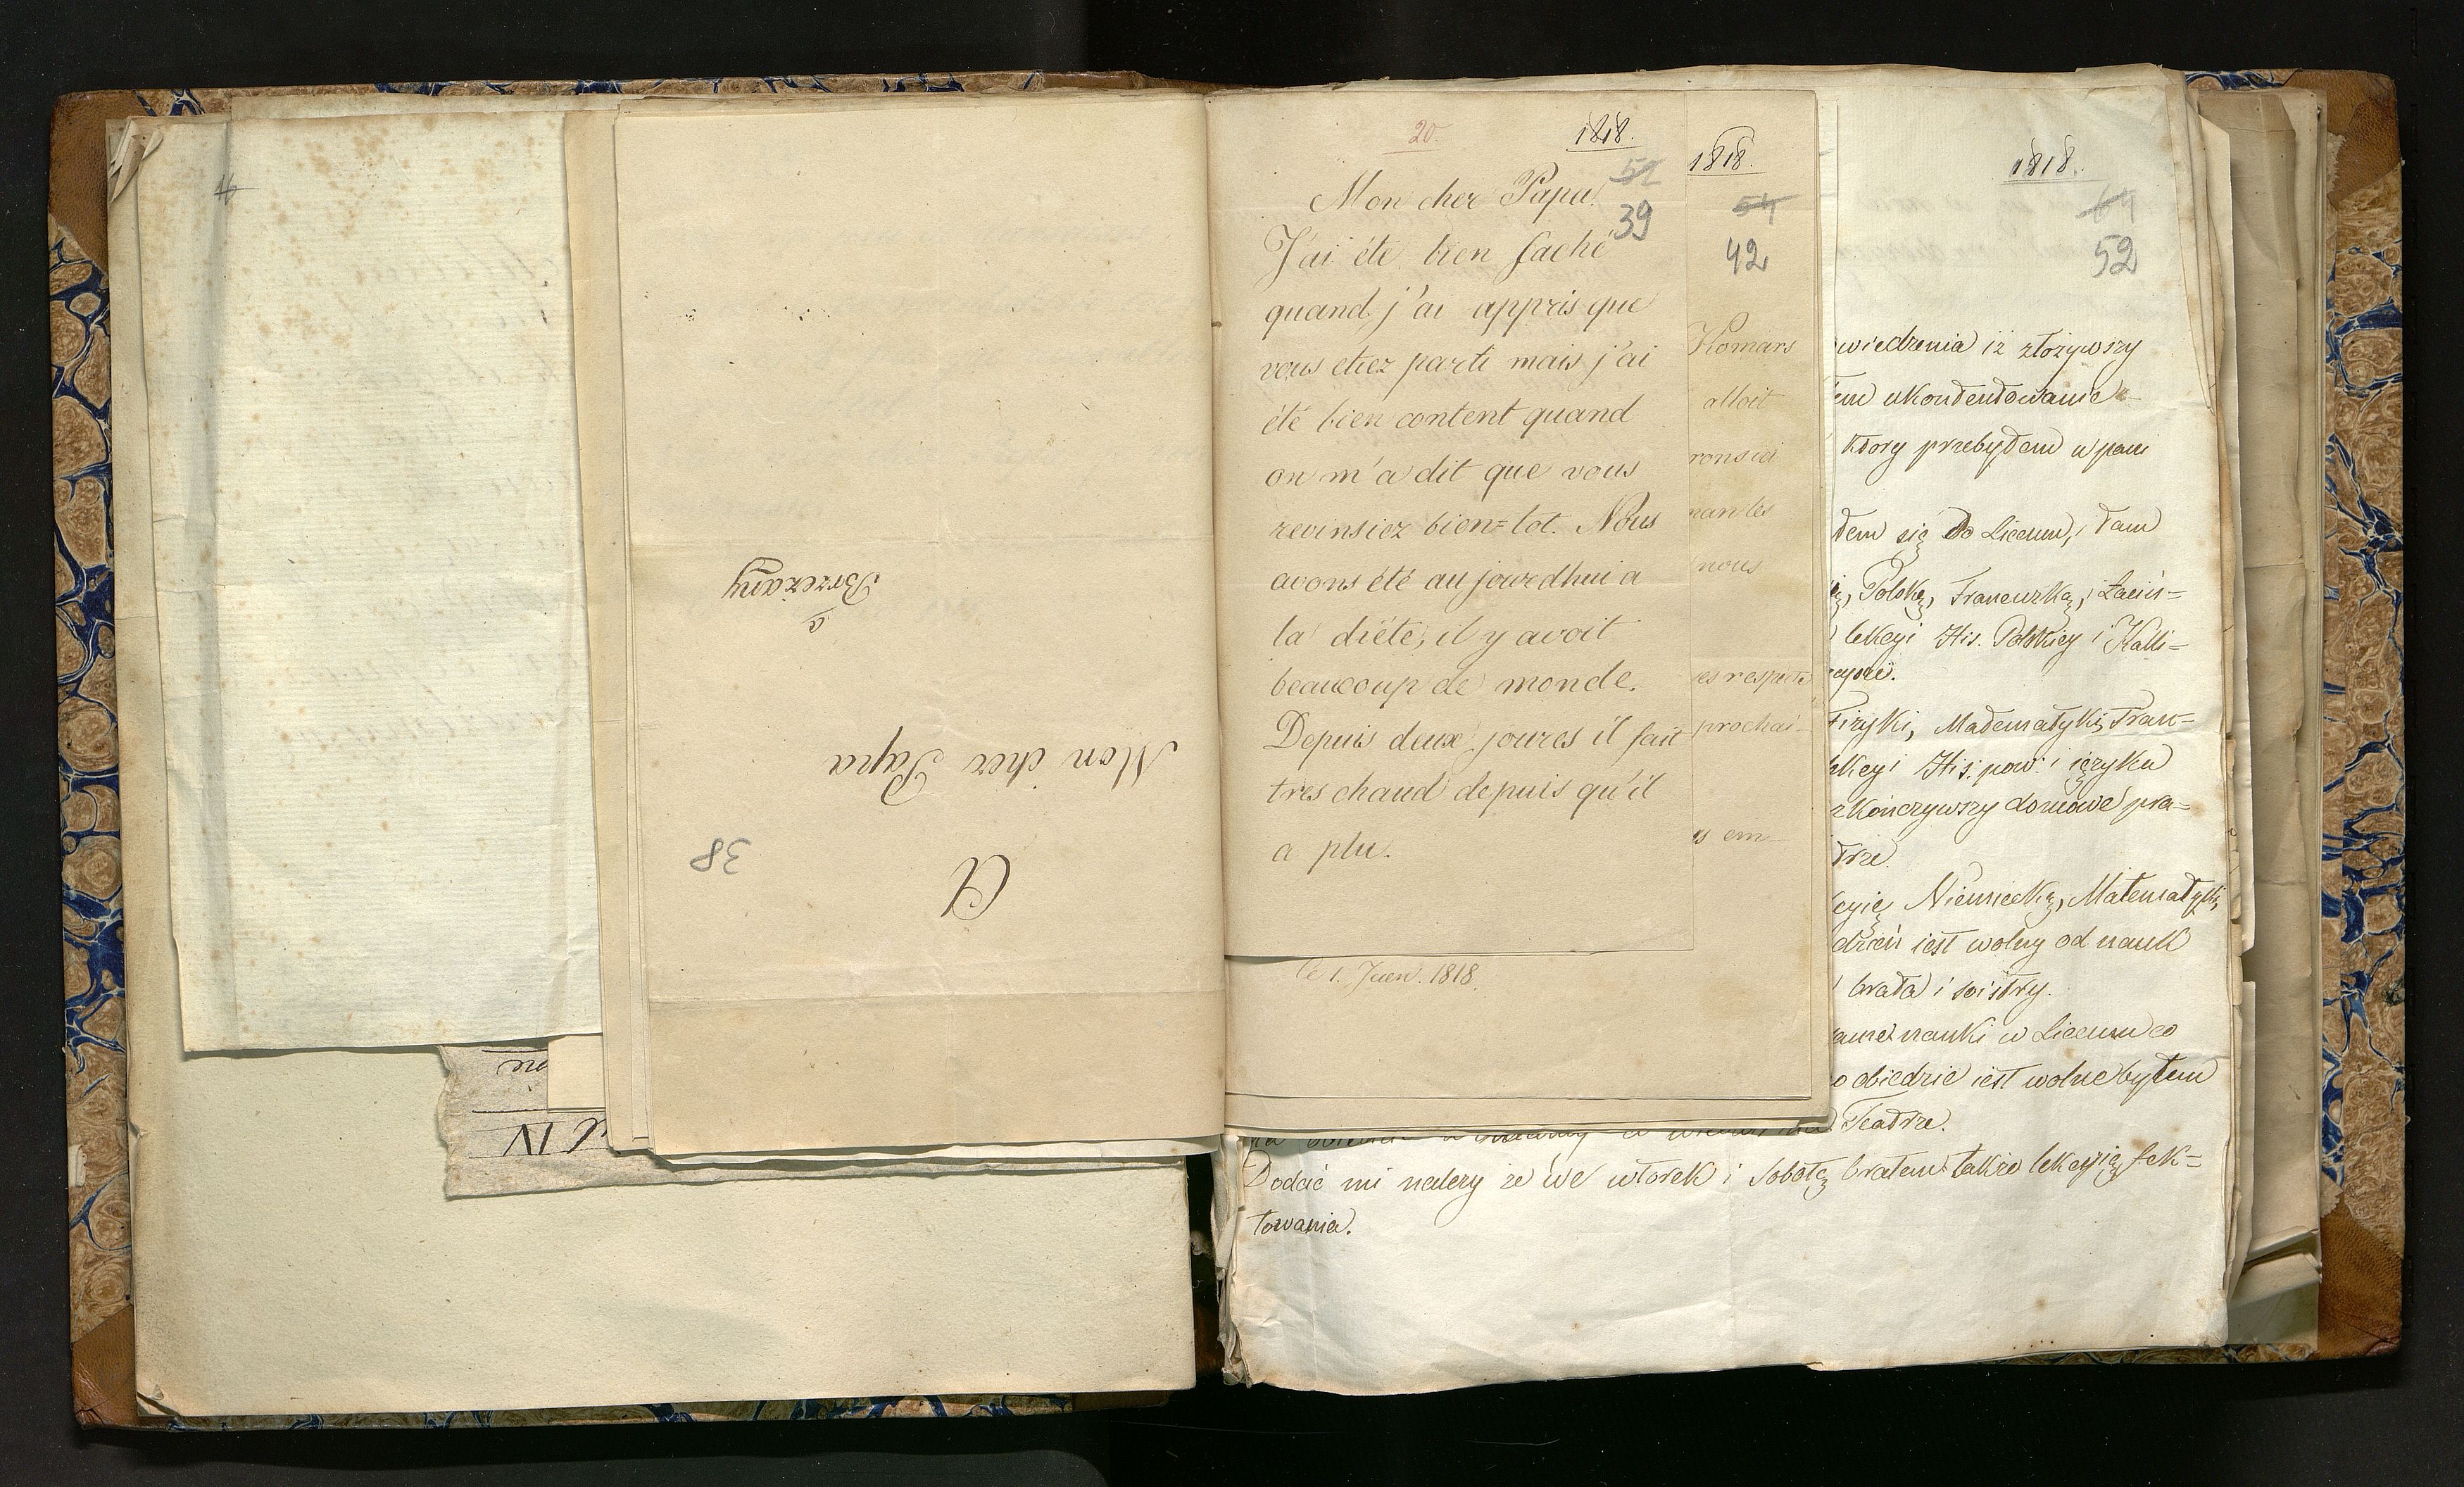 A
Mon cher Papa
à
Brzeżany
38
20.
1818.
52
39
Mon cher Papa
J'ai éte bien faché
quand j'ai appris que
vous etiez parti mais j'ai
été bien content quand
on m'a dit que vous
revinsiez bien=tot. Nous
avons été aujourdhui a
la diéte, il y avoit
beaucoup de monde.
Depuis deux joures il fait
tres chaud depuis qu'il
a plu.
1818.
54
42
Komars
alloit
rons ici
nan les
nous
es respects
prochai-
s em-
le 1. Juen. 1818.
1818.
64
52
wiedzenia iż złożywszy
em ukontentowanie
ktory przebyłem w pani
łem się do Liceum, i tam
Polskę, Francuzką, i Łaciń=
lekcyi His. Polskiey i Kalli=
Fizyki, Matematyki, Fran=
His: pow: i ięzyku
zkończywszy domowe pra=
trze.
cyię Niemiecką, Matematyki,
dzień iest wolny od nauk
brata i siostry.
same nauki w Liceum co
o obiedzie iest wolne byłem
Teatrze.
Dodać mi należy że we wtorek i Sobotę brałem także lekcyię fek=
towania.
ne
IV